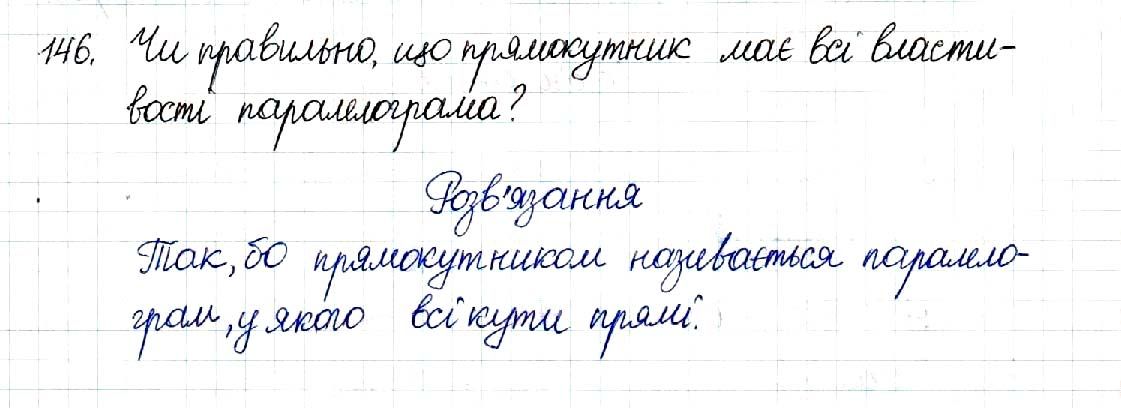 146. Чи правильно, що прямокутник має всі власти-
вості паралелограма?
Розв'язання
Так, бо прямокутником називається паралело-
грам, у якого всі кути прямі.